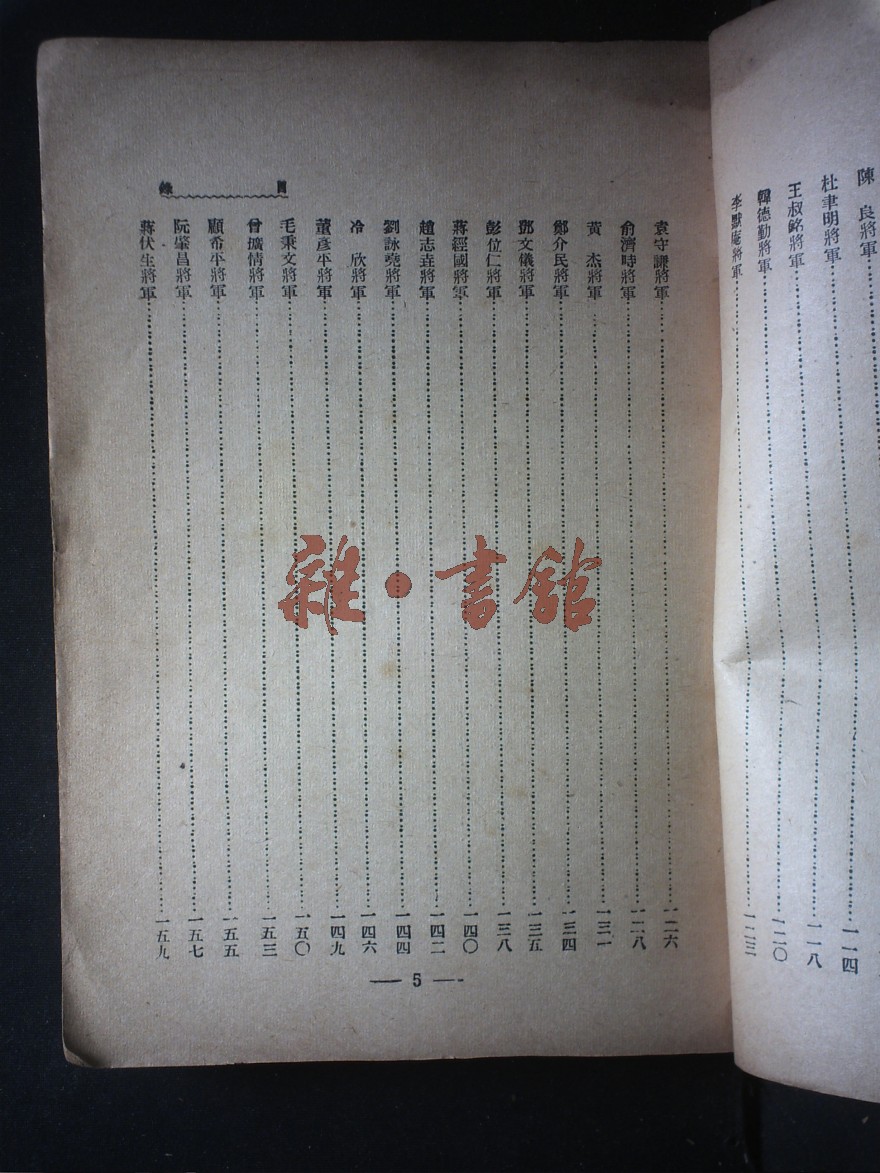 陳　良將軍…………一一四
杜聿明將軍…………一一八
王叔銘將軍…………一二〇
韓德勤將軍
李默庵將軍…………一二三
目錄
袁守謙將軍…………一二六
俞濟時將軍…………一二八
黃　杰將軍…………一三一
鄭介民將軍…………一三四
鄧文儀將軍…………一三五
彭位仁將軍…………一三八
蔣經國將軍…………一四〇
趙志垚將軍…………一四二
劉詠堯將軍…………一四四
冷　欣將軍…………一四六
董彥平將軍…………一四九
毛秉文將軍…………一五〇
曾擴情將軍…………一五三
顧希平將軍…………一五五
阮肇昌將軍…………一五七
蔣伏生將軍…………一五九
— 5 —
雜·書館